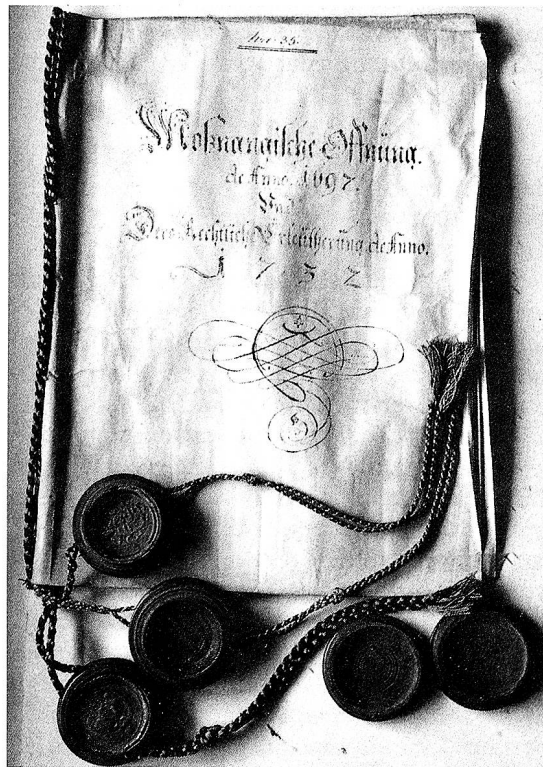 Nro. 35.
Moßnangische Offnung.
de Anno. 1697.
Und
Dero Rechtlich Erleütherung de Anno.
1732